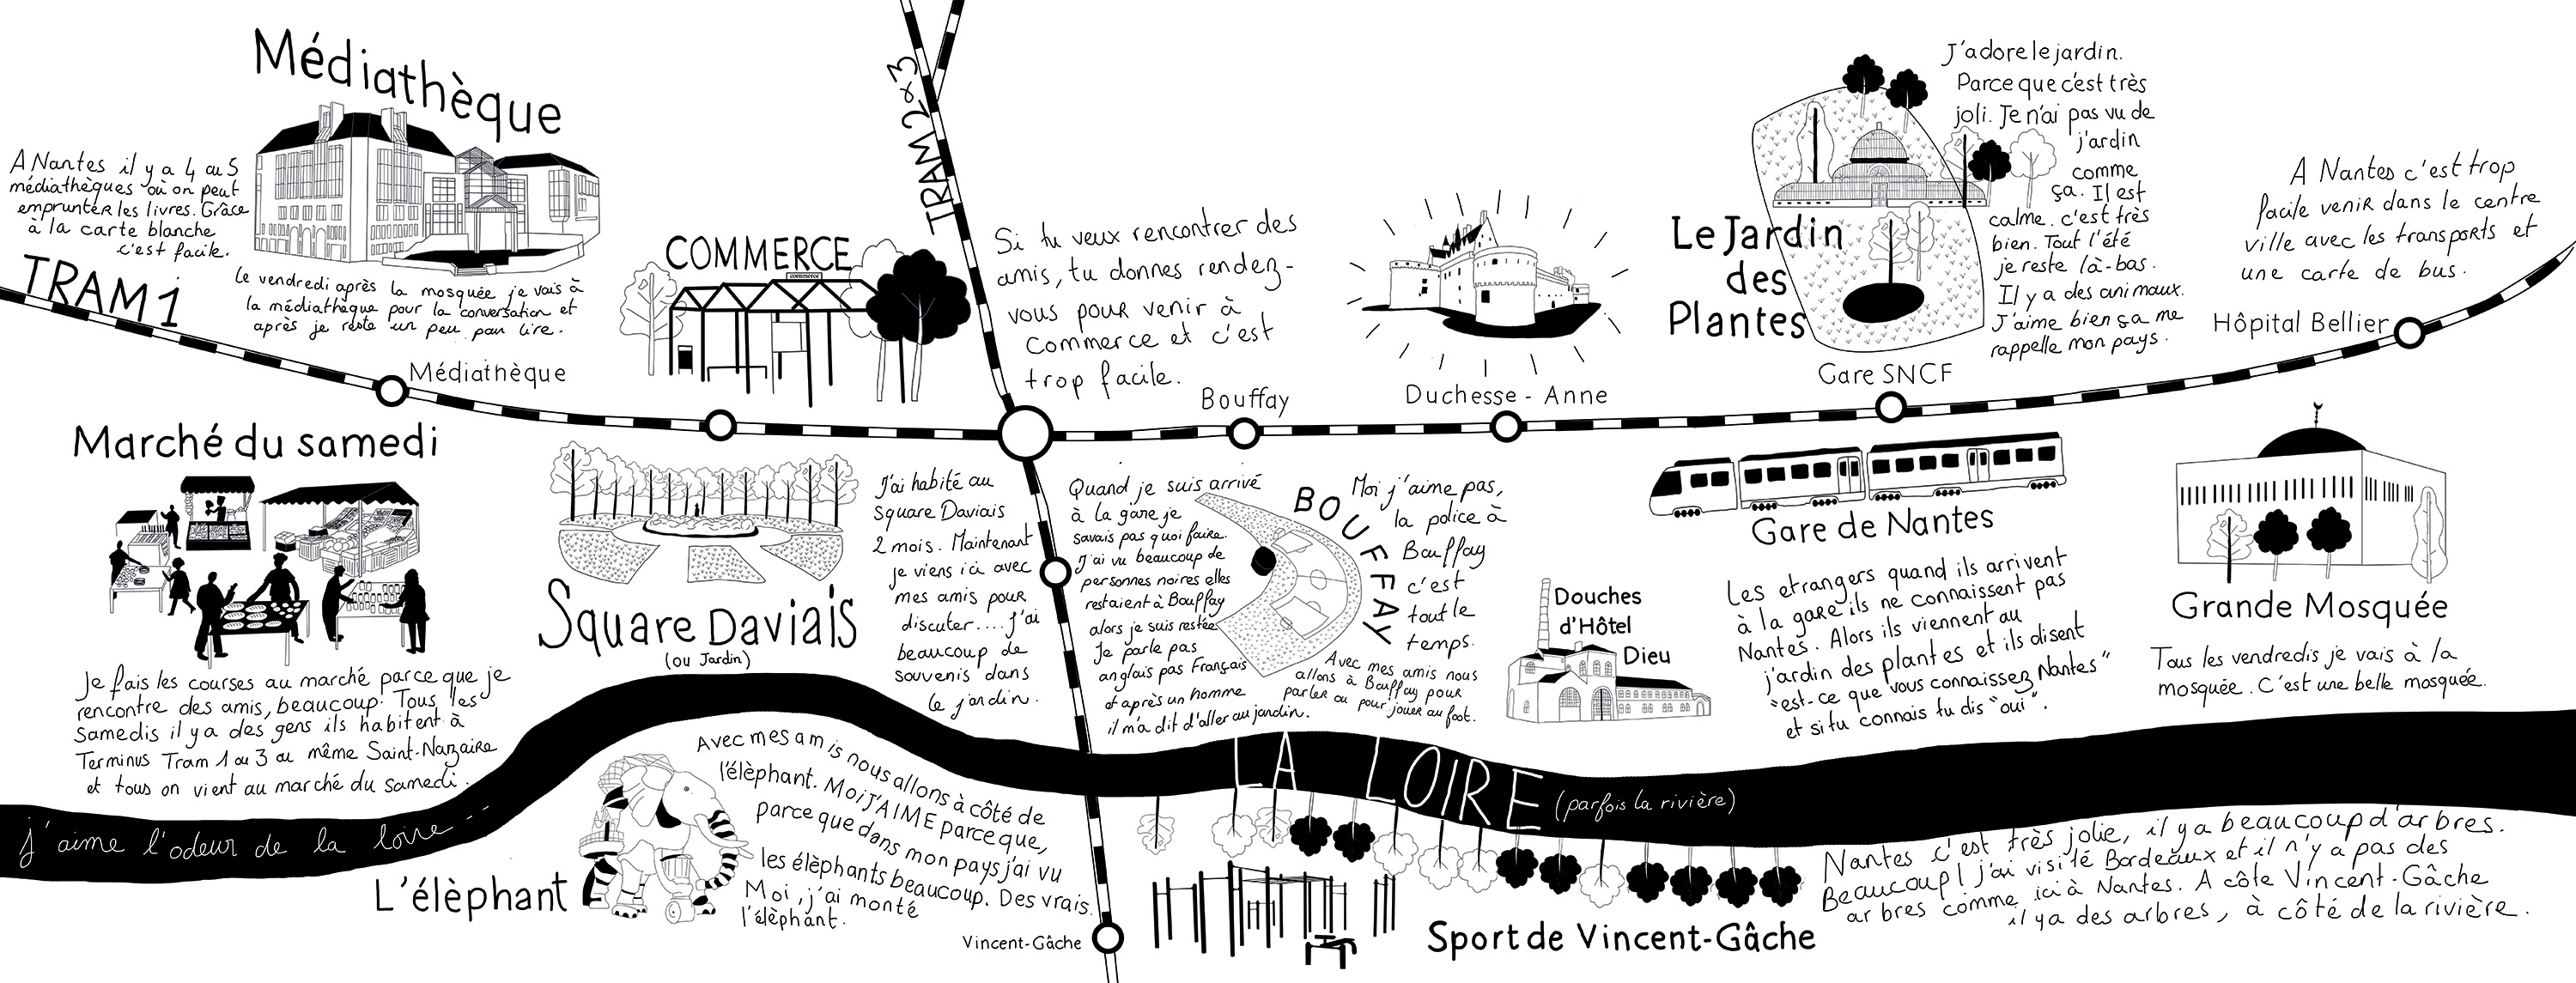 Médiathèque
A Nantes il y a 4 ou 5
médiathèques où on peut
emprunter les livres. Grâce
à la carte blanche
c'est facile.
Le vendredi après la mosquée je vais à
la médiathèque pour la conversation et
après je reste un peu pour lire.
TRAM 1
Médiathèque
COMMERCE
commerce
TRAM 2 & 3
Si tu veux rencontrer des
amis, tu donnes rendez-
vous pour venir à
Commerce et c'est
trop facile.
Bouffay
Duchesse - Anne
Le Jardin
des
Plantes
J'adore le jardin.
Parce que c'est très
joli. Je n'ai pas vu de
j'ardin
comme
ça. Il est
calme. c'est très
bien. Tout l'été
je reste là-bas.
Il y a des animaux.
J'aime bien ça me
rappelle mon pays.
Gare SNCF
A Nantes c'est trop
facile venir dans le centre
ville avec les transports et
une carte de bus.
Hôpital Bellier
Marché du samedi
Je fais les courses au marché parce que je
rencontre des amis, beaucoup. Tous les
Samedis il y a des gens ils habitent à
Terminus Tram 1 ou 3 ou même Saint-Nazaire
et tous on vient au marché du samedi.
Square Daviais
(ou Jardin)
J'ai habité au
Square Daviais
2 mois. Maintenant
je viens ici avec
mes amis pour
discuter.... j'ai
beaucoup de
souvenis dans
le jardin.
Quand je suis arrivé
à la gare je
savais pas quoi faire.
J'ai vu beaucoup de
personnes noires elles
restaient à Bouffay
alors je suis restée
Je parle pas
anglais pas Français
et après un homme
il m'a dit d'aller au jardin.
BOUFFAY
Moi j'aime pas,
la police à
Bouffay
c'est
tout le
temps.
Avec mes amis nous
allons à Bouffay pour
parler ou pour jouer au foot.
Douches
d'Hôtel
Dieu
Gare de Nantes
Les etrangers quand ils arrivent
à la gare ils ne connaissent pas
Nantes. Alors ils viennent au
j'ardin des plantes et ils disent
"est-ce que vous connaissez Nantes"
et si tu connais tu dis "oui".
Grande Mosquée
Tous les vendredis je vais à la
mosquée. C'est une belle mosquée.
LA LOIRE (parfois la rivière)
j'aime l'odeur de la loire
L'élèphant
Avec mes amis nous allons à côté de
l'élèphant. Moi J'AIME parce que,
parce que dans mon pays j'ai vu
les élèphants beaucoup. Des vrais.
Moi, j'ai monté
l'élèphant.
Vincent-Gâche
Sport de Vincent-Gâche
Nantes c'est très jolie, il y a beaucoup d'arbres.
Beaucoup! j'ai visité Bordeaux et il n'y a pas des
arbres comme ici à Nantes. A côte Vincent-Gâche
il y a des arbres, à côté de la rivière.